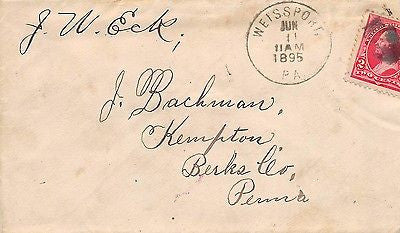 J. W. Eck,
WEISSPORT
JUN
11
11AM
1895
PA
2
TWO CENTS
J. Bachman,
Kempton
Berks Co,
Penna